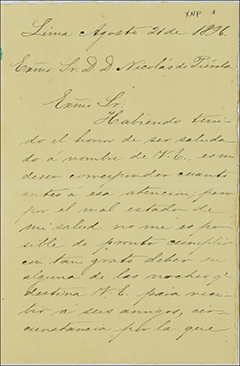 XNP 1
Lima Agosto 21 de 1896.
Exmo Sr. D. D. Nicolás de Piérola
Exmo Sr:
Habiendo teni-
do el honor de ser saluda
do á nombre de V.E., es mi
deseo corresponder cuanto
antes á esa atencion; pero
por el mal estado de
mi salud no me es po-
sible de pronto cumplir
con tan grato deber en
alguna de las noches q.
destina V.E. para reci-
bir a sus amigos, cir-
cunstancia por la que